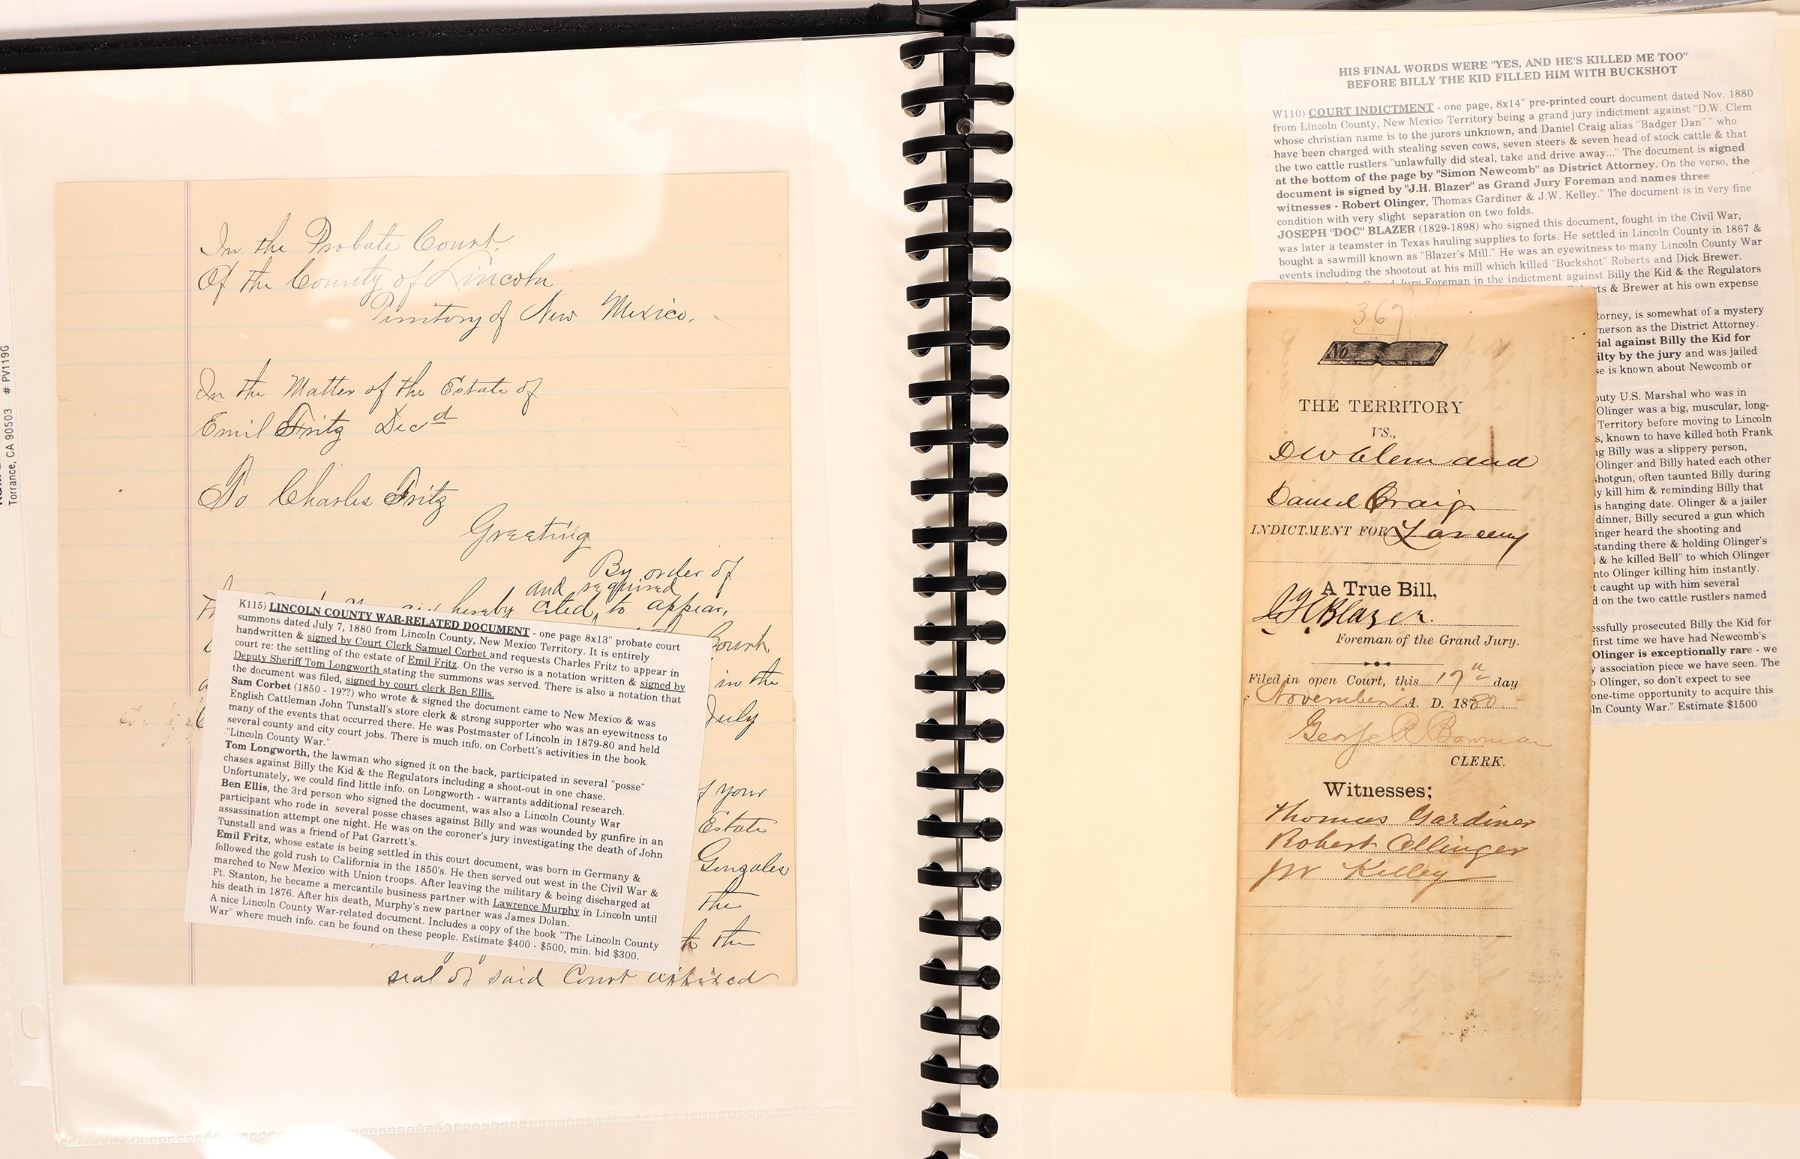 Torrance, CA 90503 # PV119G
In the Probate Court.
Of the County of Lincoln
Territory of New Mexico.
In the Matter of the Estate of
Emil Fritz Decd
To Charles Fritz
Greeting
By order of
and required
hereby cited, to appear,
Court,
in the
July
your
Estate
Gonzales
the
the
seal of said Court affixed
K115) LINCOLN COUNTY WAR-RELATED DOCUMENT - one page 8x13" probate court
summons dated July 7, 1880 from Lincoln County, New Mexico Territory. It is entirely
handwritten & signed by Court Clerk Samuel Corbet and requests Charles Fritz to appear in
court re: the settling of the estate of Emil Fritz. On the verso is a notation written & signed by
Deputy Sheriff Tom Longworth stating the summons was served. There is also a notation that
the document was filed, signed by court clerk Ben Ellis.
Sam Corbet (1850 - 19??) who wrote & signed the document came to New Mexico & was
English Cattleman John Tunstall's store clerk & strong supporter who was an eyewitness to
many of the events that occurred there. He was Postmaster of Lincoln in 1879-80 and held
several county and city court jobs. There is much info. on Corbett's activities in the book
"Lincoln County War."
Tom Longworth, the lawman who signed it on the back, participated in several "posse"
chases against Billy the Kid & the Regulators including a shoot-out in one chase.
Unfortunately, we could find little info. on Longworth - warrants additional research.
Ben Ellis, the 3rd person who signed the document, was also a Lincoln County War
participant who rode in several posse chases against Billy and was wounded by gunfire in an
assassination attempt one night. He was on the coroner's jury investigating the death of John
Tunstall and was a friend of Pat Garrett's.
Emil Fritz, whose estate is being settled in this court document, was born in Germany &
followed the gold rush to California in the 1850's. He then served out west in the Civil War &
marched to New Mexico with Union troops. After leaving the military & being discharged at
Ft. Stanton, he became a mercantile business partner with Lawrence Murphy in Lincoln until
his death in 1876. After his death, Murphy's new partner was James Dolan.
A nice Lincoln County War-related document. Includes a copy of the book "The Lincoln County
War" where much info. can be found on these people. Estimate $400 - $500, min. bid $300.
HIS FINAL WORDS WERE "YES, AND HE'S KILLED ME TOO"
BEFORE BILLY THE KID FILLED HIM WITH BUCKSHOT
W110) COURT INDICTMENT - one page, 8x14" pre-printed court document dated Nov. 1880
from Lincoln County, New Mexico Territory being a grand jury indictment against "D.W. Clem
whose christian name is to the jurors unknown, and Daniel Craig alias "Badger Dan" " who
have been charged with stealing seven cows, seven steers & seven head of stock cattle & that
the two cattle rustlers "unlawfully did steal, take and drive away..." The document is signed
at the bottom of the page by "Simon Newcomb" as District Attorney. On the verso, the
document is signed by "J.H. Blazer" as Grand Jury Foreman and names three
witnesses - Robert Olinger, Thomas Gardiner & J.W. Kelley." The document is in very fine
condition with very slight separation on two folds.
JOSEPH "DOC" BLAZER (1829-1898) who signed this document, fought in the Civil War,
was later a teamster in Texas hauling supplies to forts. He settled in Lincoln County in 1867 &
bought a sawmill known as "Blazer's Mill." He was an eyewitness to many Lincoln County War
events including the shootout at his mill which killed "Buckshot" Roberts and Dick Brewer.
Grand Jury Foreman in the indictment against Billy the Kid & the Regulators
& Brewer at his own expense
torney, is somewhat of a mystery
nerson as the District Attorney.
ial against Billy the Kid for
ilty by the jury and was jailed
se is known about Newcomb or
puty U.S. Marshal who was in
Olinger was a big, muscular, long-
Territory before moving to Lincoln
s, known to have killed both Frank
ng Billy was a slippery person,
Olinger and Billy hated each other
shotgun, often taunted Billy during
y kill him & reminding Billy that
is hanging date. Olinger & a jailer
dinner, Billy secured a gun which
inger heard the shooting and
standing there & holding Olinger's
& he killed Bell" to which Olinger
nto Olinger killing him instantly.
t caught up with him several
d on the two cattle rustlers named
essfully prosecuted Billy the Kid for
first time we have had Newcomb's
Olinger is exceptionally rare - we
y association piece we have seen. The
o Olinger, so don't expect to see
one-time opportunity to acquire this
ln County War." Estimate $1500
367
No
THE TERRITORY
VS.,
D W Clem and
Daniel Craig
INDICTMENT FOR Larceny
A True Bill,
J H Blazer.
Foreman of the Grand Jury.
Filed in open Court, this 17th day
November A. D. 1880
George R Bowman
CLERK.
Witnesses;
Thomas Gardiner
Robert Ollinger
JW Kelley